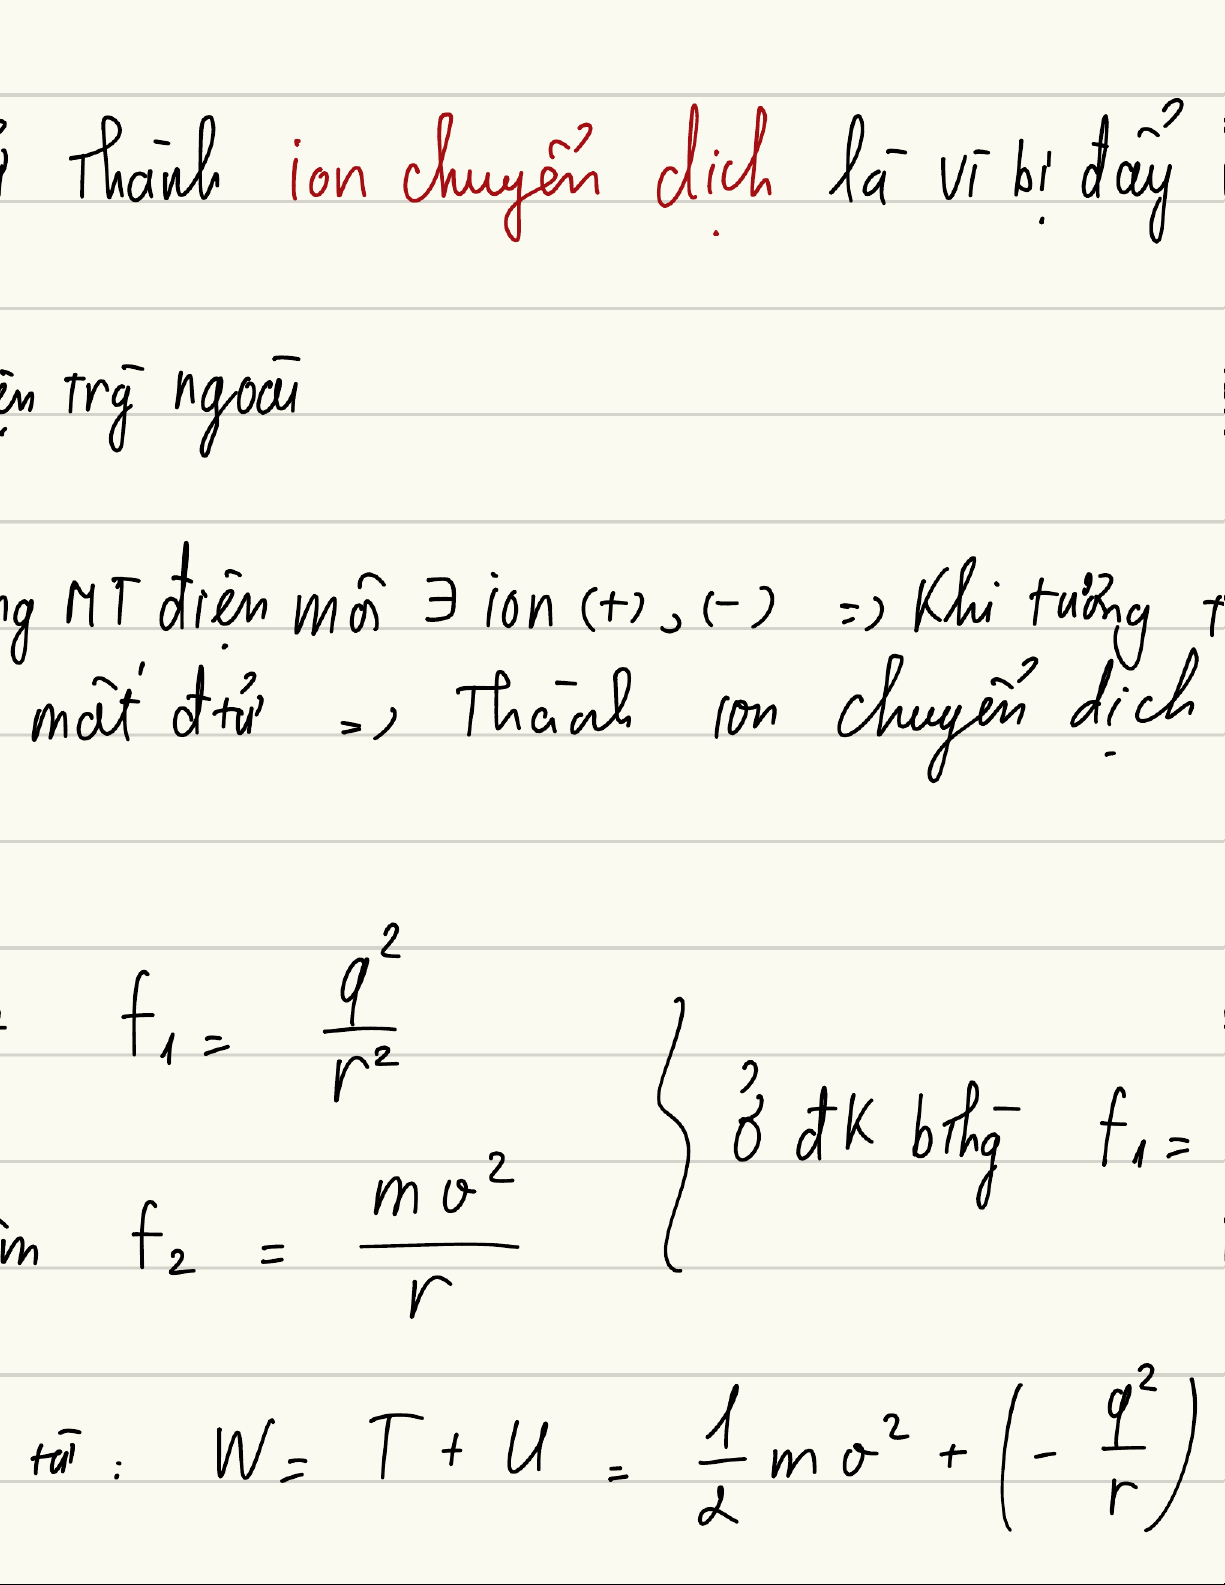 Thành ion chuyển dịch là vì bị đẩy
trg ngoài
MT điện môi ∃ ion (+), (-) => Khi tương
mất đtử => Thành ion chuyển dịch
f₁ = q²/r²
Ở đk bthg f₁ =
f₂ = mv²/r
W = T + U = 1/2 mv² + (- q²/r)